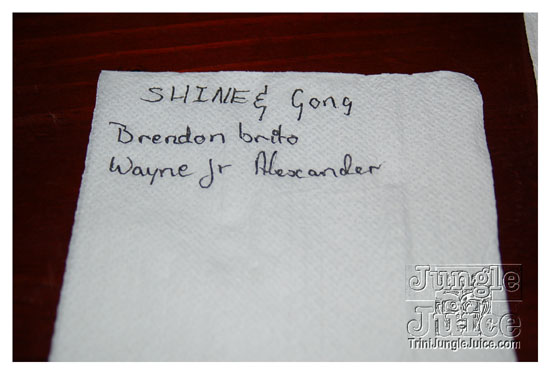 SHINE & Gong
Brendon brito
Wayne Jr Alexander
Jungle
Juice
TriniJungleJuice.com